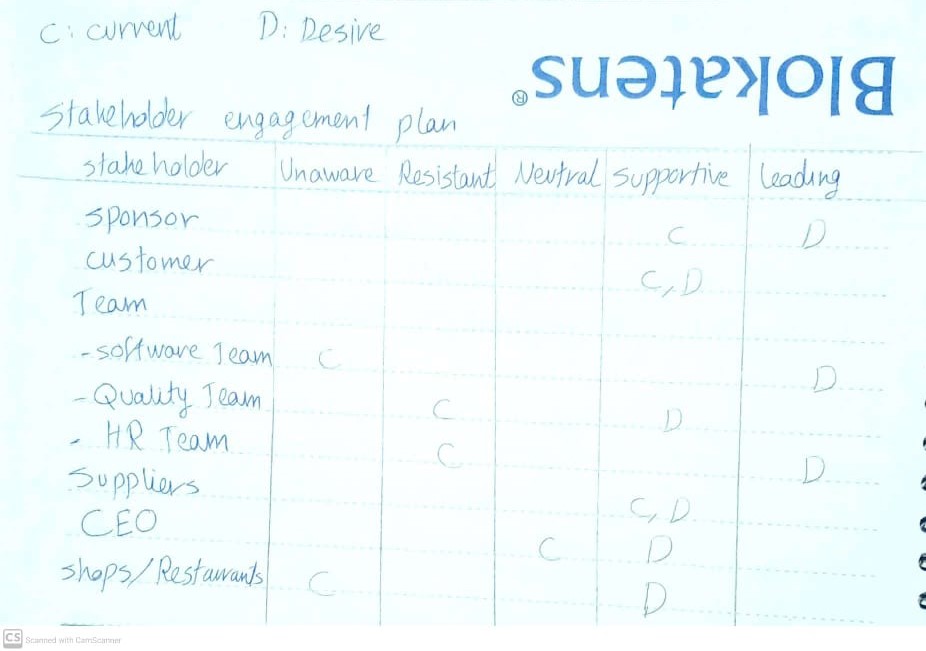 C: current D: Desire
Blokatens®
Stakeholder engagement plan
stakeholder Unaware Resistant Neutral supportive leading
sponsor C D
customer C, D
Team
- software Team C D
- Quality Team C D
- HR Team C D
Suppliers C, D
CEO C D
shops/Restaurants C D
CS Scanned with CamScanner